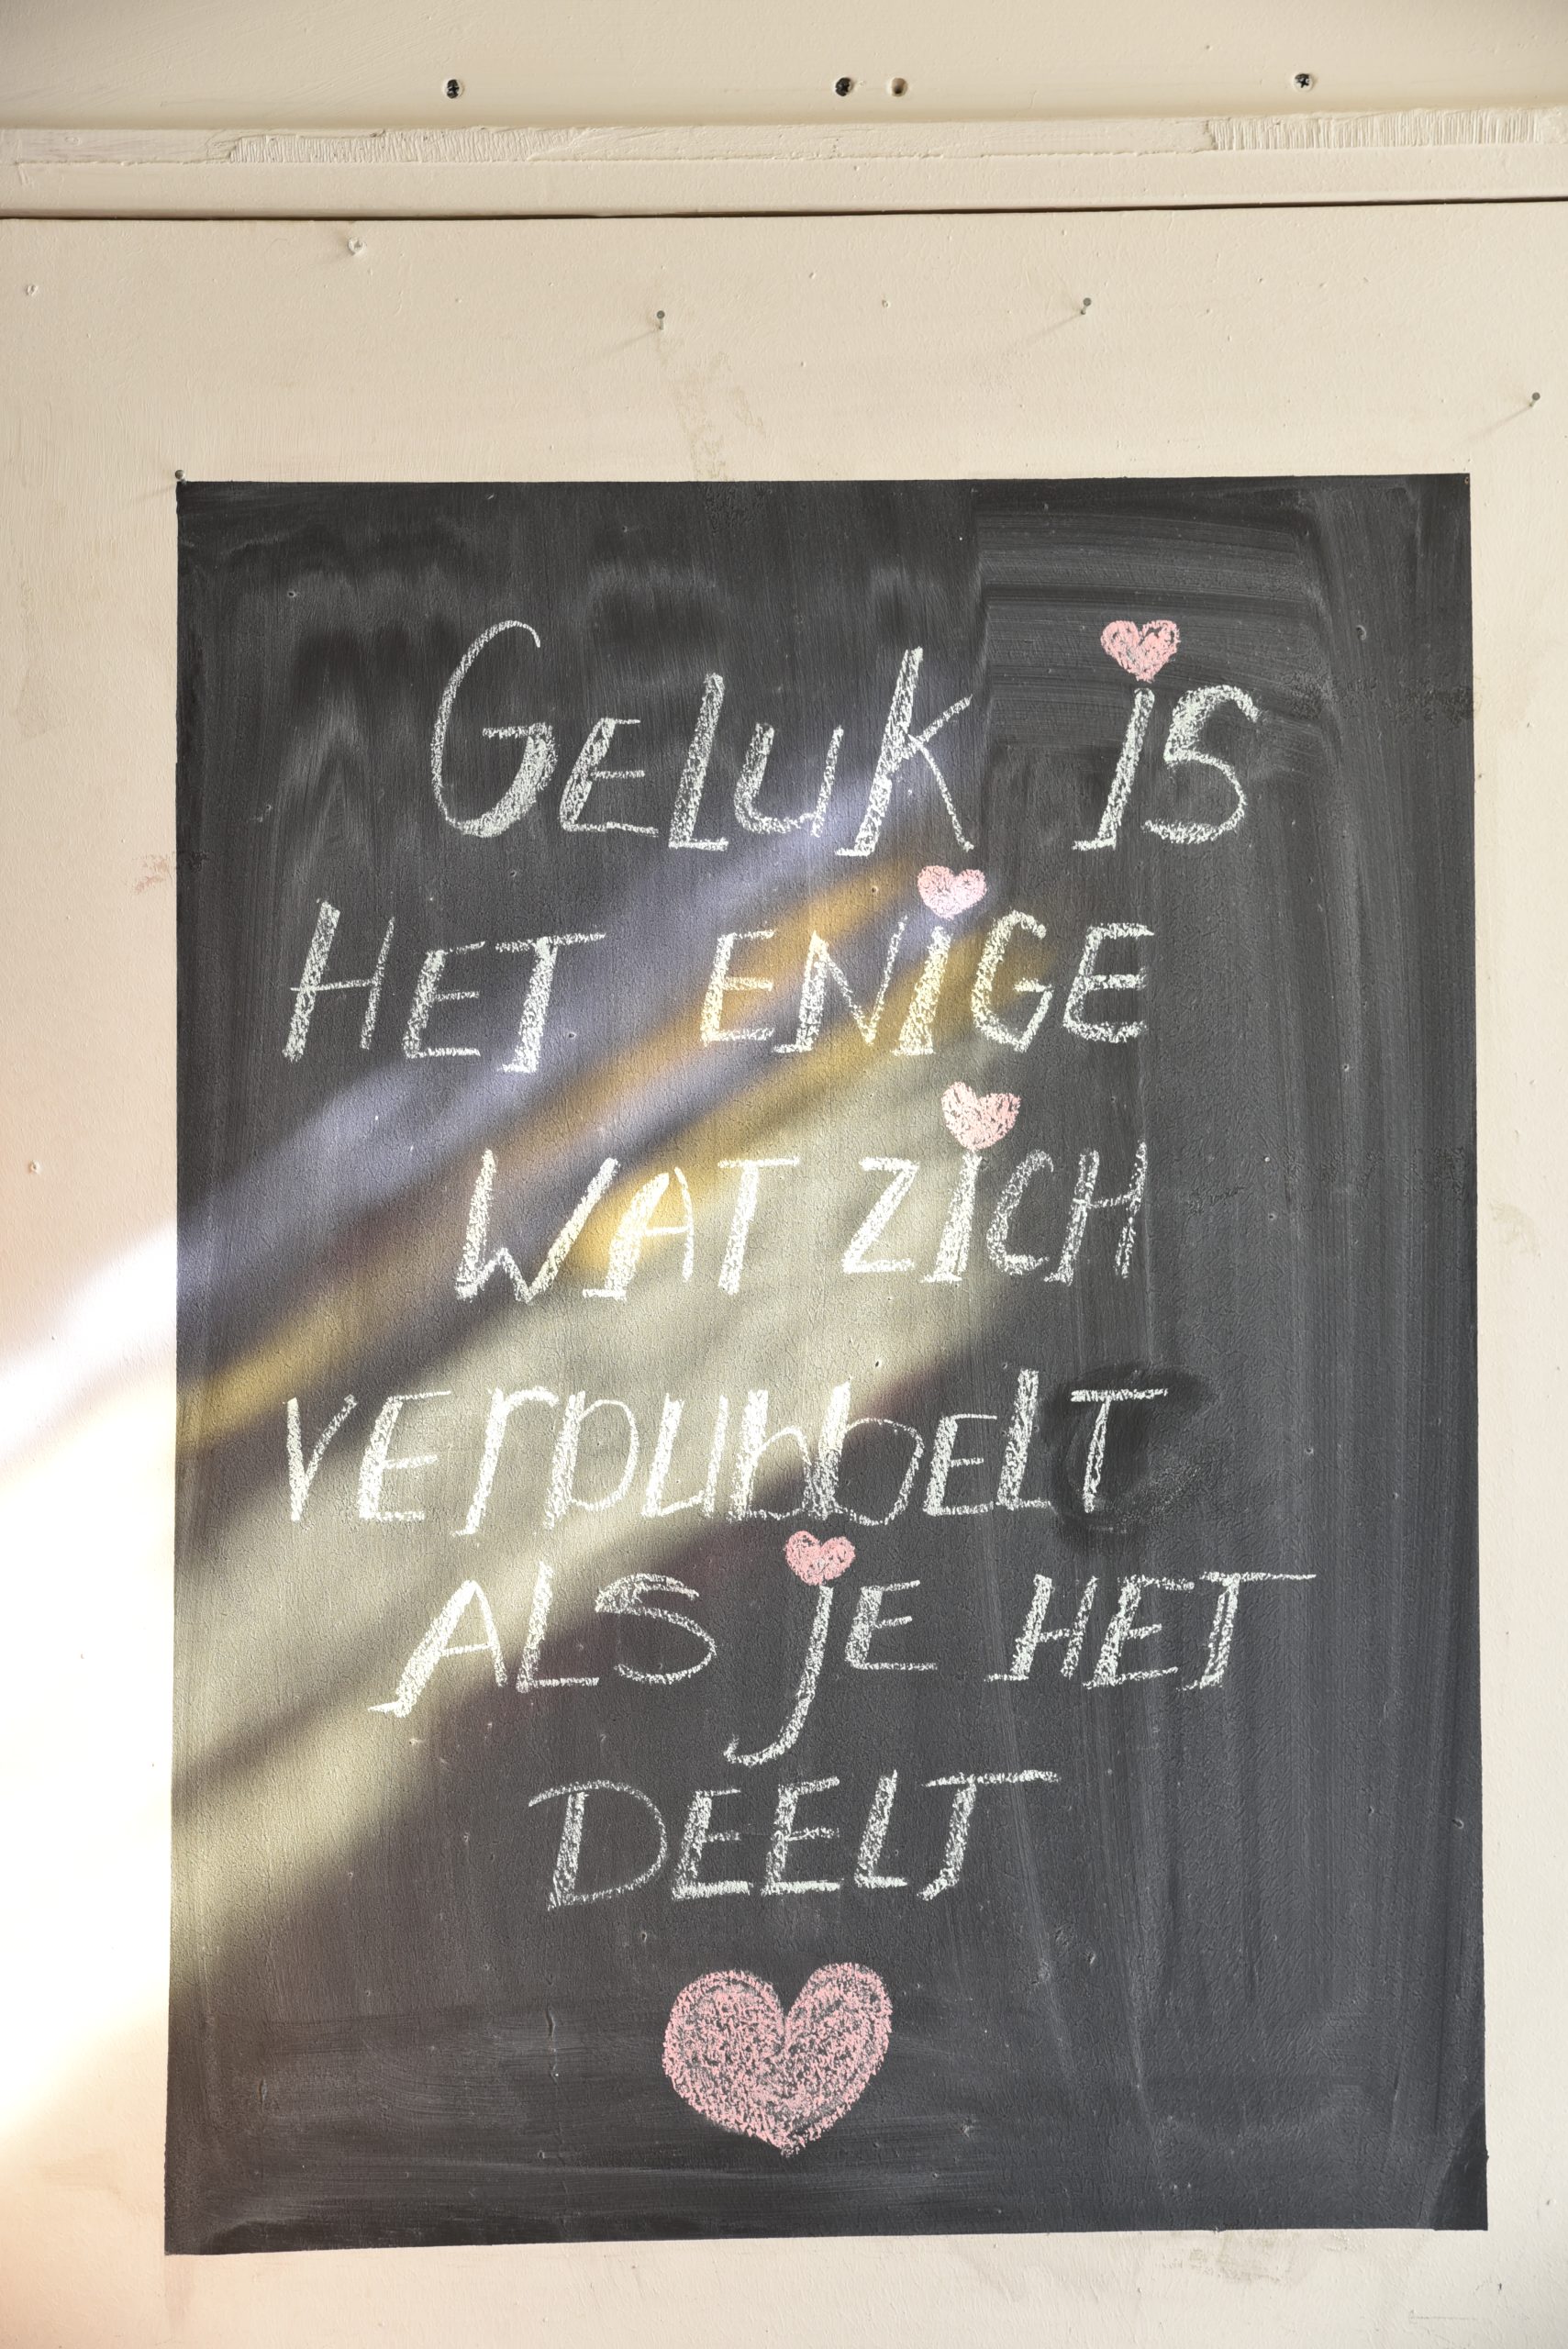 GELUK iS
HET ENiGE
WAT ZiCH
VERDUbbELT
ALS jE HET
DEELT